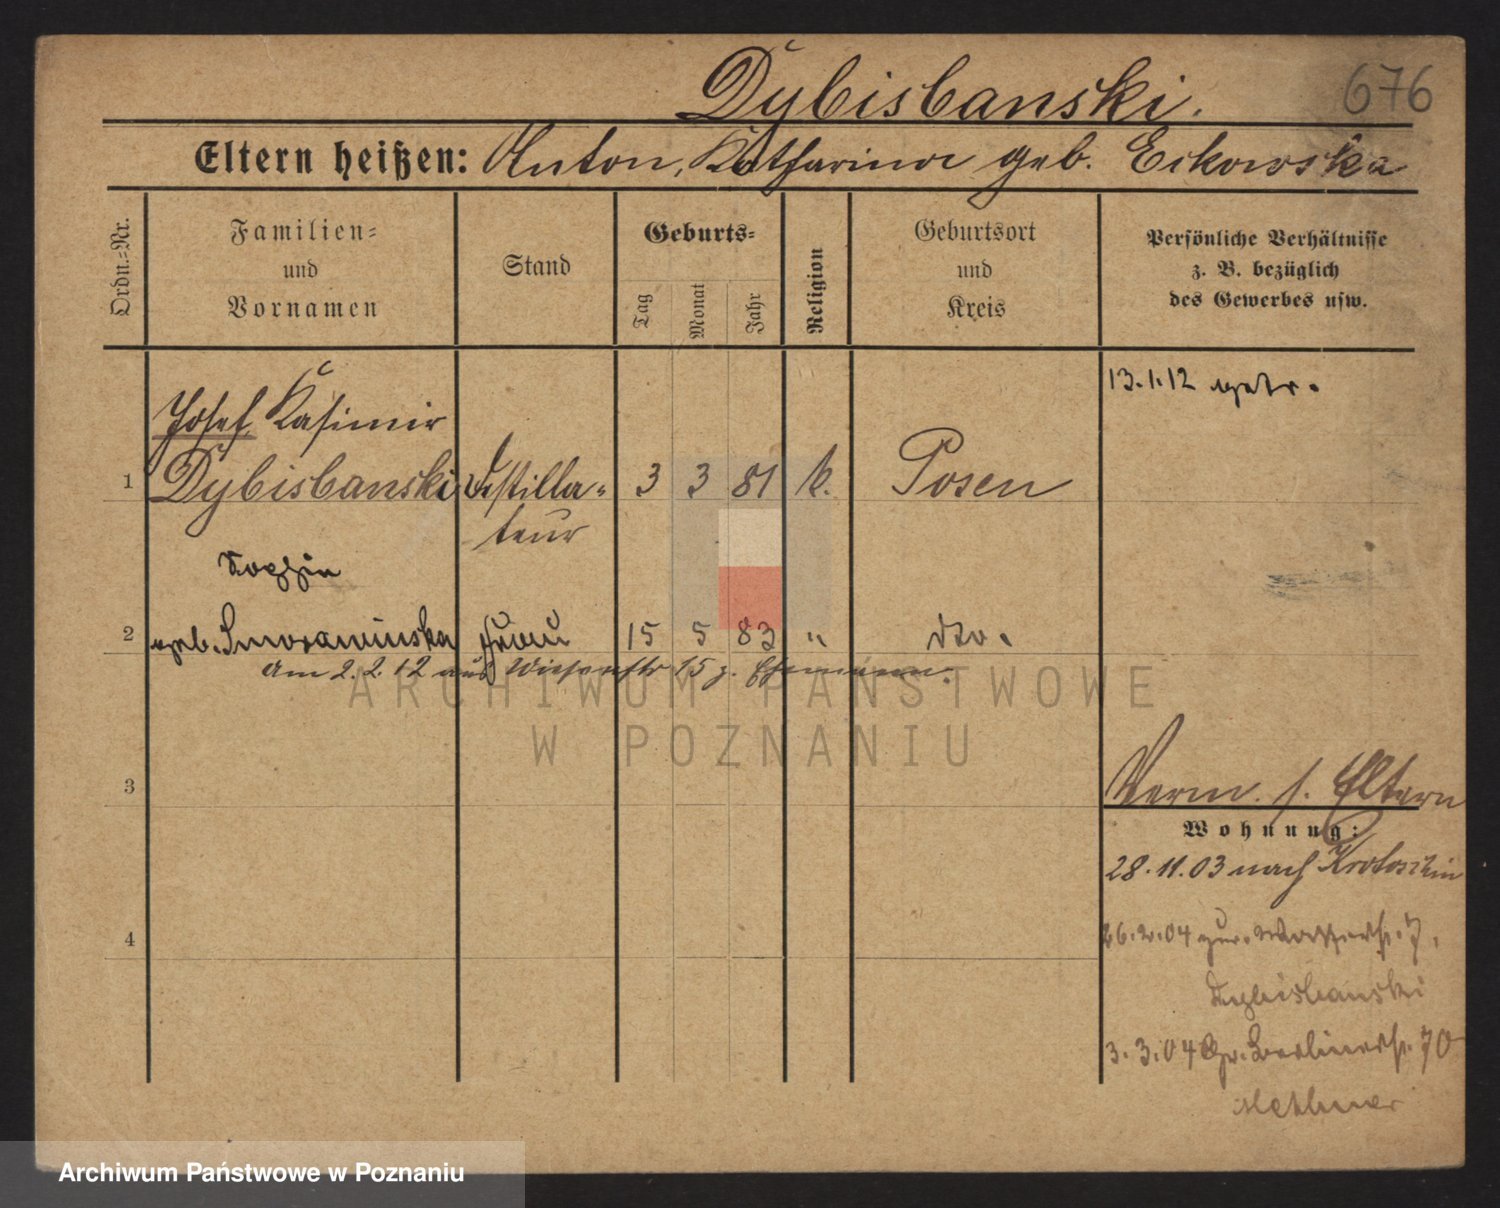 676
Dybisbanski.
Eltern heißen: Anton, Katharina geb. Eckowska
Ordn.-Nr.
Familien-
und
Vornamen
Stand
Geburts-
Tag
Monat
Jahr
Religion
Geburtsort
und
Kreis
Persönliche Verhältnisse
z. B. bezüglich
des Gewerbes usw.
13.1.12 getr.
Josef Kasimir
1 Dybisbanski Destilla- 3 3 81 k. Posen
teur
Sophia
2 geb. Smorawinska Frau 15 5 83 " dto.
Am 2.2.12 aus Wiesenstr 15 z. Ehemann.
ARCHIWUM PAŃSTWOWE
W POZNANIU
3
Verm. s. Eltern
Wohnung:
28.11.03 nach Krotoschin
4
26.2.04 zur. Wasserstr. 7,
Dybisbanski
3.3.04 Gr. Berlinerstr. 70
Archiwum Państwowe w Poznaniu